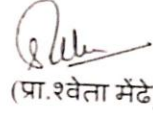 (प्रा.श्वेता मेंढे